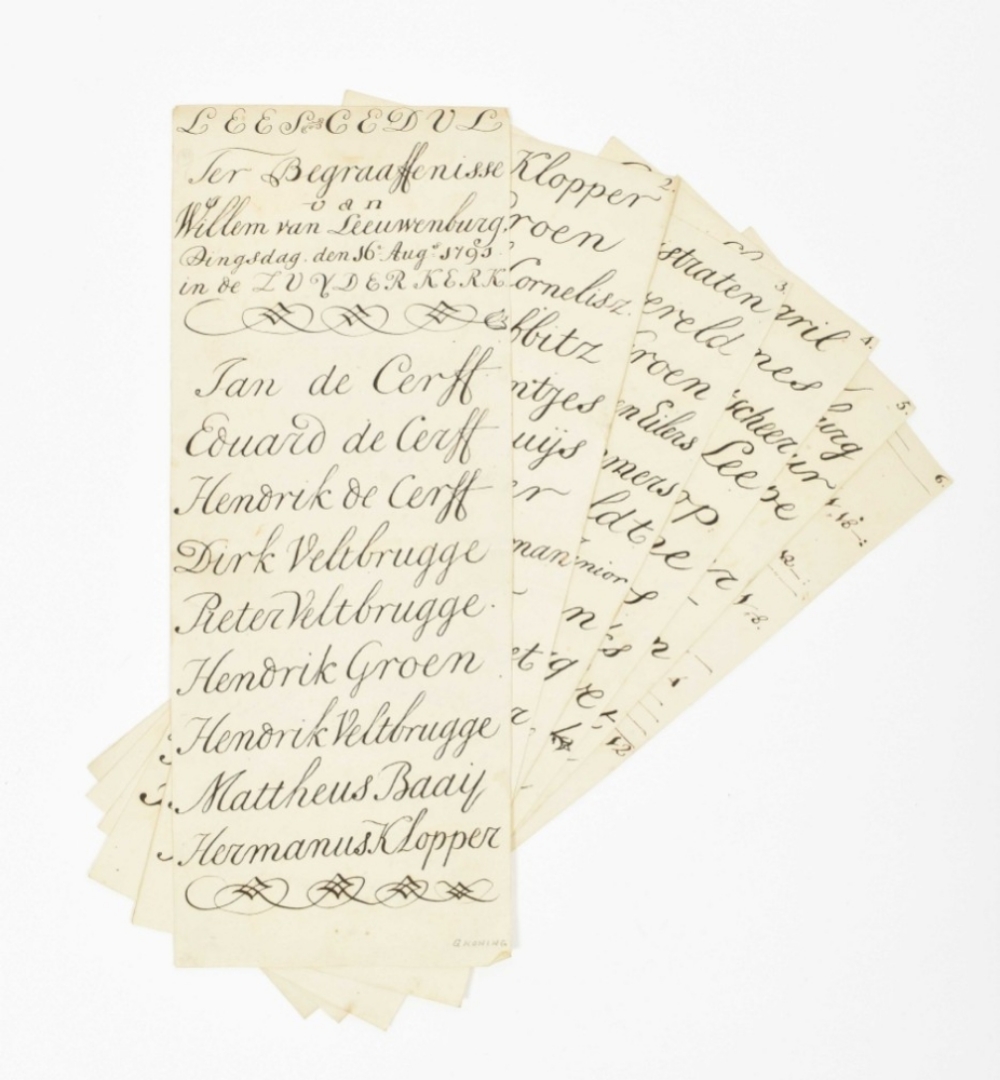 LEES CEDUL
Ter Begraaffenisse
van
Willem van Leeuwenburg.
Dingsdag. den 16e Augs 1791.
in de ZUYDERKERK
Jan de Cerff
Eduard de Cerff
Hendrik de Cerff
Dirk Veltbrugge
Pieter Veltbrugge.
Hendrik Groen
Hendrik Veltbrugge
Mattheus Baaij
Hermanus Klopper
2.
Klopper
roen
Cornelisz.
bbitz
ntjes
uijs
er
man
3.
straten
ereld
roen
en Eilers
mers
ldt
nior
n
4.
ril
nes
scheer
Lee
op
5.
urg
ir
6.